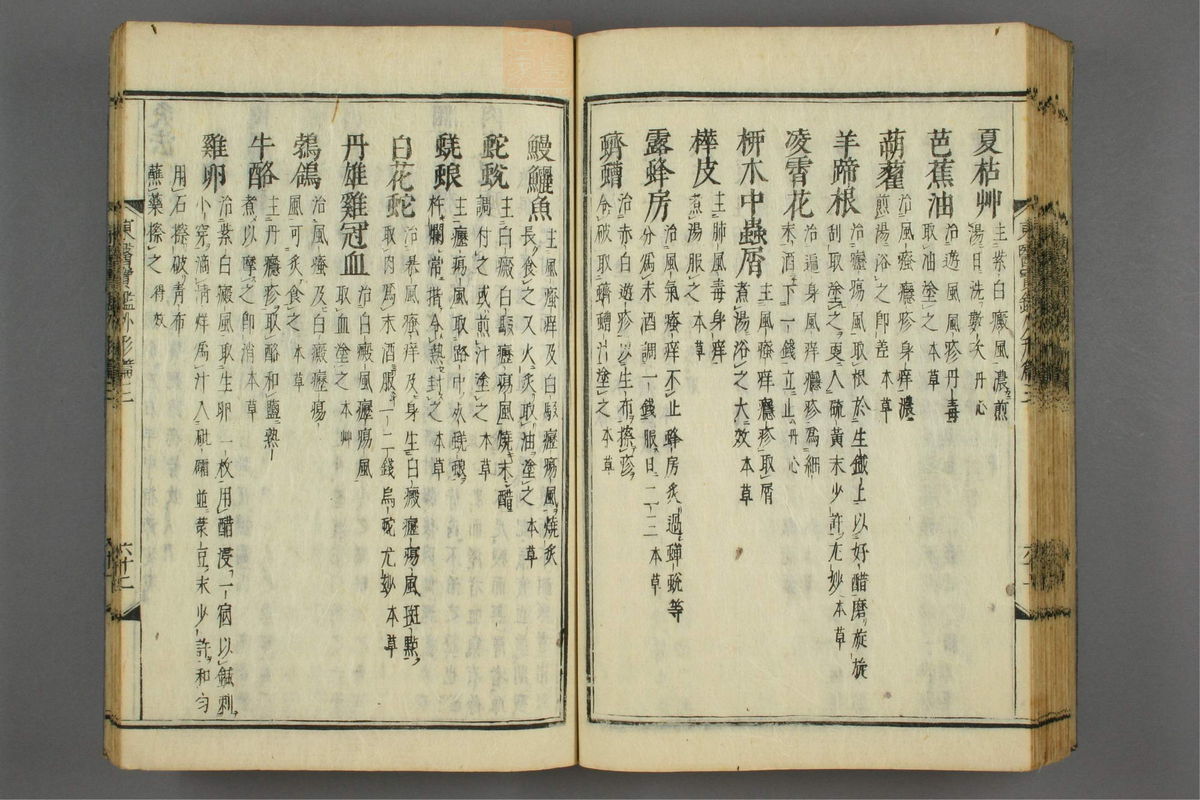 夏枯艸 主紫白癜風濃煎
湯日洗數次丹心
芭蕉油 治遊風疹丹毒
取油塗之本草
蒴藋 治風瘙癮疹身痒濃
煎湯浴之卽差本草
羊蹄根 治癧瘍風取根於生鐵上以好醋磨旋旋
刮取塗之更入硫黃末少許尤妙本草
凌霄花 治遍身風痒癮疹爲細
末酒下一錢立止丹心
柳木中蟲屑 主風瘙痒癮疹取屑
煮湯浴之大效本草
樺皮 主肺風毒身痒
煮湯服之本草
露蜂房 治風氣瘙痒不止蜂房炙過蟬蛻等
分爲末酒調一錢服日二三本草
蠐螬 治赤白遊疹以生布擦疹
令破取蠐螬汁塗之本草
鰻鱺魚 主風瘙痒及白駁癧瘍風燒炙
長食之又火炙取油塗之本草
蛇蛻 主白癜白駁癧瘍風燒末醋
調付之或煎汁塗之本草
蜣蜋 主癧瘍風取路中死蜣蜋
杵爛常揩令熱封之本草
白花蛇 治暴風瘙痒及身生白癜癧瘍風斑點
取肉爲末酒服一二錢烏蛇尤妙本草
丹雄雞冠血 治白癜風癧瘍風
取血塗之本艸
鵓鴿 治風瘙及白癜癧瘍
風可炙食之本草
牛酪 主丹癮疹取酪和鹽熱
煮以摩之卽消本草
雞卵 治紫白癜風取生卵一枚用醋浸一宿以鍼刺
小穿滴淸烊爲汁入砒礵並菉豆末少許和勻
用石擦破靑布
蘸藥擦之得效
東醫寶鑑外形篇三
六十二